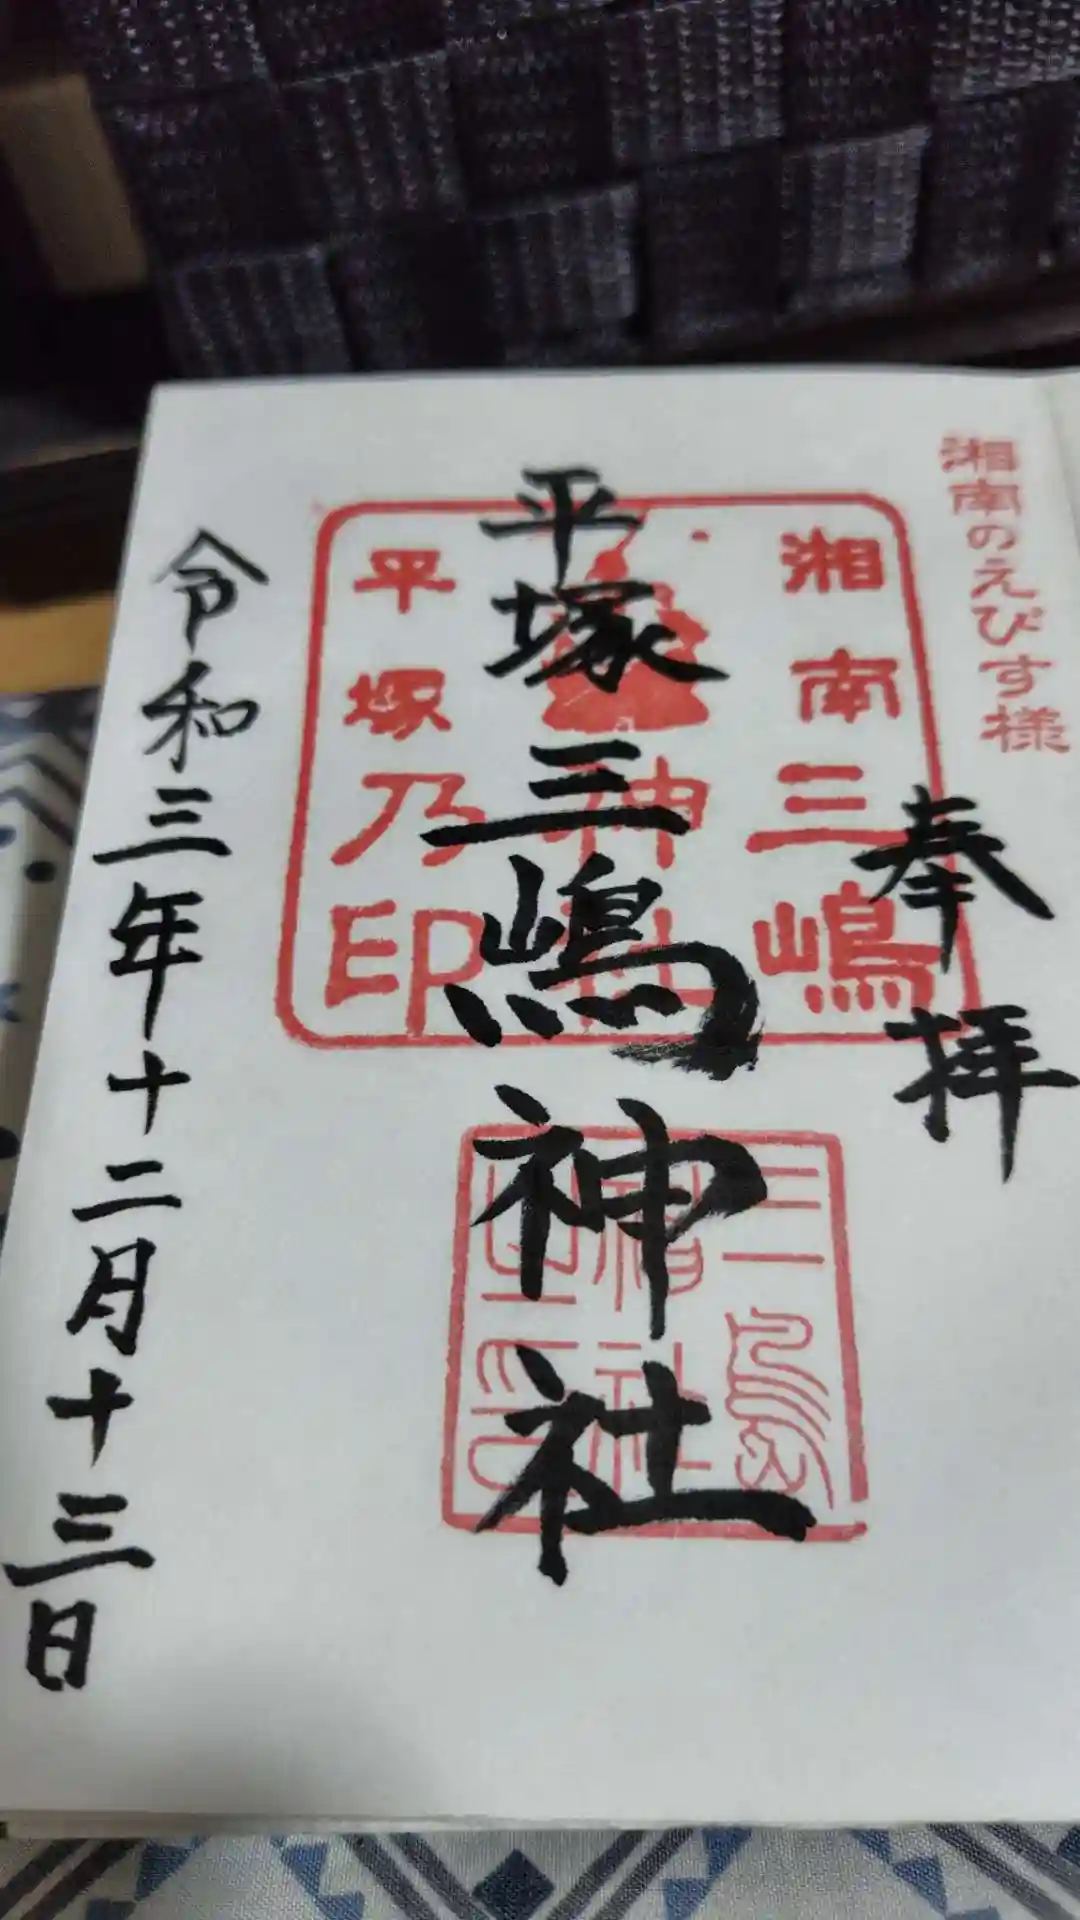 湘南のえびす様
奉拝
湘南三嶋
神社
平塚乃印
平塚三嶋神社
三島
神社
令和三年十二月十三日